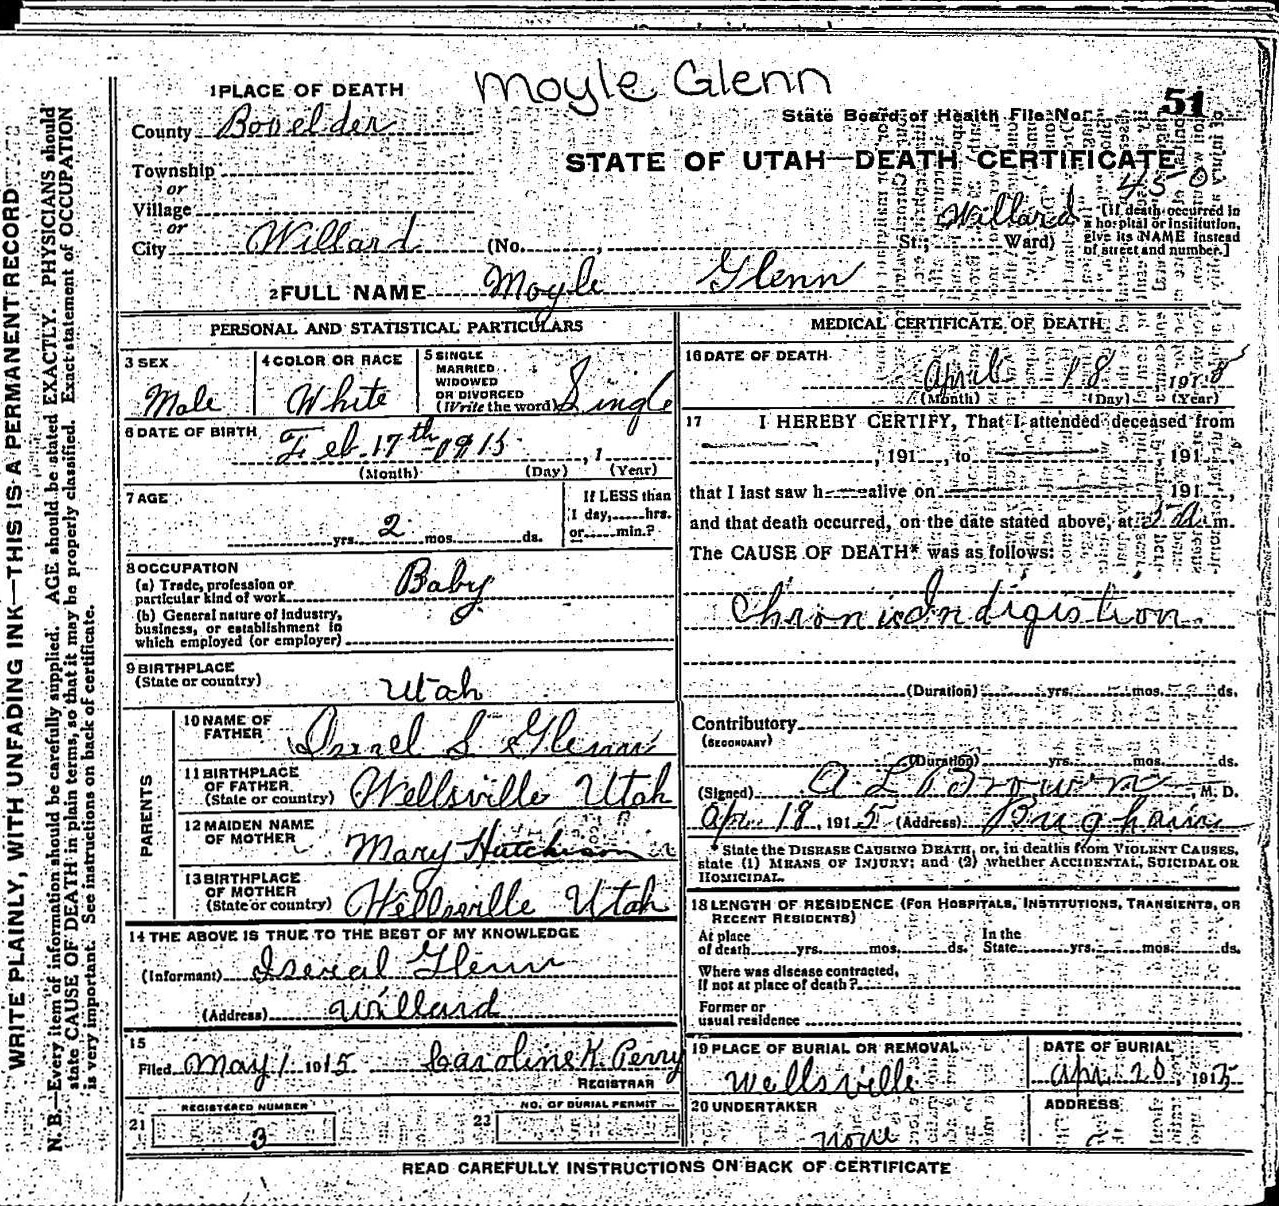 Moyle Glenn
51
State Board of Health File No.
STATE OF UTAH—DEATH CERTIFICATE
1 PLACE OF DEATH
County Boxelder
Township
or
Village
or
City Willard (No. , St.; Willard Ward)
[If death occurred in
a hospital or institution,
give its NAME instead
of street and number.]
2 FULL NAME Moyle Glenn
PERSONAL AND STATISTICAL PARTICULARS
3 SEX
Male
4 COLOR OR RACE
White
5 SINGLE
MARRIED
WIDOWED
OR DIVORCED
(Write the word) Single
6 DATE OF BIRTH
Feb. 17th 1915 , 1
(Month) (Day) (Year)
7 AGE
yrs. 2 mos. ds.
If LESS than
1 day, hrs.
or min.?
8 OCCUPATION
(a) Trade, profession or
particular kind of work Baby
(b) General nature of industry,
business, or establishment in
which employed (or employer)
9 BIRTHPLACE
(State or country)
Utah
PARENTS
10 NAME OF
FATHER Isreal S Glenn
11 BIRTHPLACE
OF FATHER
(State or country) Wellsville Utah
12 MAIDEN NAME
OF MOTHER Mary Hutchison
13 BIRTHPLACE
OF MOTHER
(State or country) Wellsville Utah
14 THE ABOVE IS TRUE TO THE BEST OF MY KNOWLEDGE
(Informant) Isreal Glenn
(Address) Willard
15
Filed May 1 1915 Caroline K. Perry
REGISTRAR
21
REGISTERED NUMBER
3
22
NO. OF BURIAL PERMIT
MEDICAL CERTIFICATE OF DEATH
16 DATE OF DEATH
April 18 191 5
(Month) (Day) (Year)
17 I HEREBY CERTIFY, That I attended deceased from
, 191 , to , 191 ,
that I last saw h alive on 191 ,
and that death occurred, on the date stated above, at m.
The CAUSE OF DEATH* was as follows:
Chronic Indigistion.
(Duration) yrs. mos. ds.
Contributory
(SECONDARY)
(Duration) yrs. mos. ds.
(Signed) A L Brown M. D.
Apr. 18, 1915 (Address) Brigham
*State the DISEASE CAUSING DEATH, or, in deaths from VIOLENT CAUSES,
state (1) MEANS OF INJURY; and (2) whether ACCIDENTAL, SUICIDAL OR
HOMICIDAL.
18 LENGTH OF RESIDENCE (FOR HOSPITALS, INSTITUTIONS, TRANSIENTS, OR
RECENT RESIDENTS)
At place
of death yrs. mos. ds.
In the
State yrs. mos. ds.
Where was disease contracted,
If not at place of death?
Former or
usual residence
19 PLACE OF BURIAL OR REMOVAL
Wellsville
DATE OF BURIAL
Apr. 20, 1915
20 UNDERTAKER
none
ADDRESS
READ CAREFULLY INSTRUCTIONS ON BACK OF CERTIFICATE
WRITE PLAINLY, WITH UNFADING INK—THIS IS A PERMANENT RECORD
N. B.—Every item of information should be carefully supplied. AGE should be stated EXACTLY. PHYSICIANS should
state CAUSE OF DEATH in plain terms, so that it may be properly classified. Exact statement of OCCUPATION
is very important. See instructions on back of certificate.